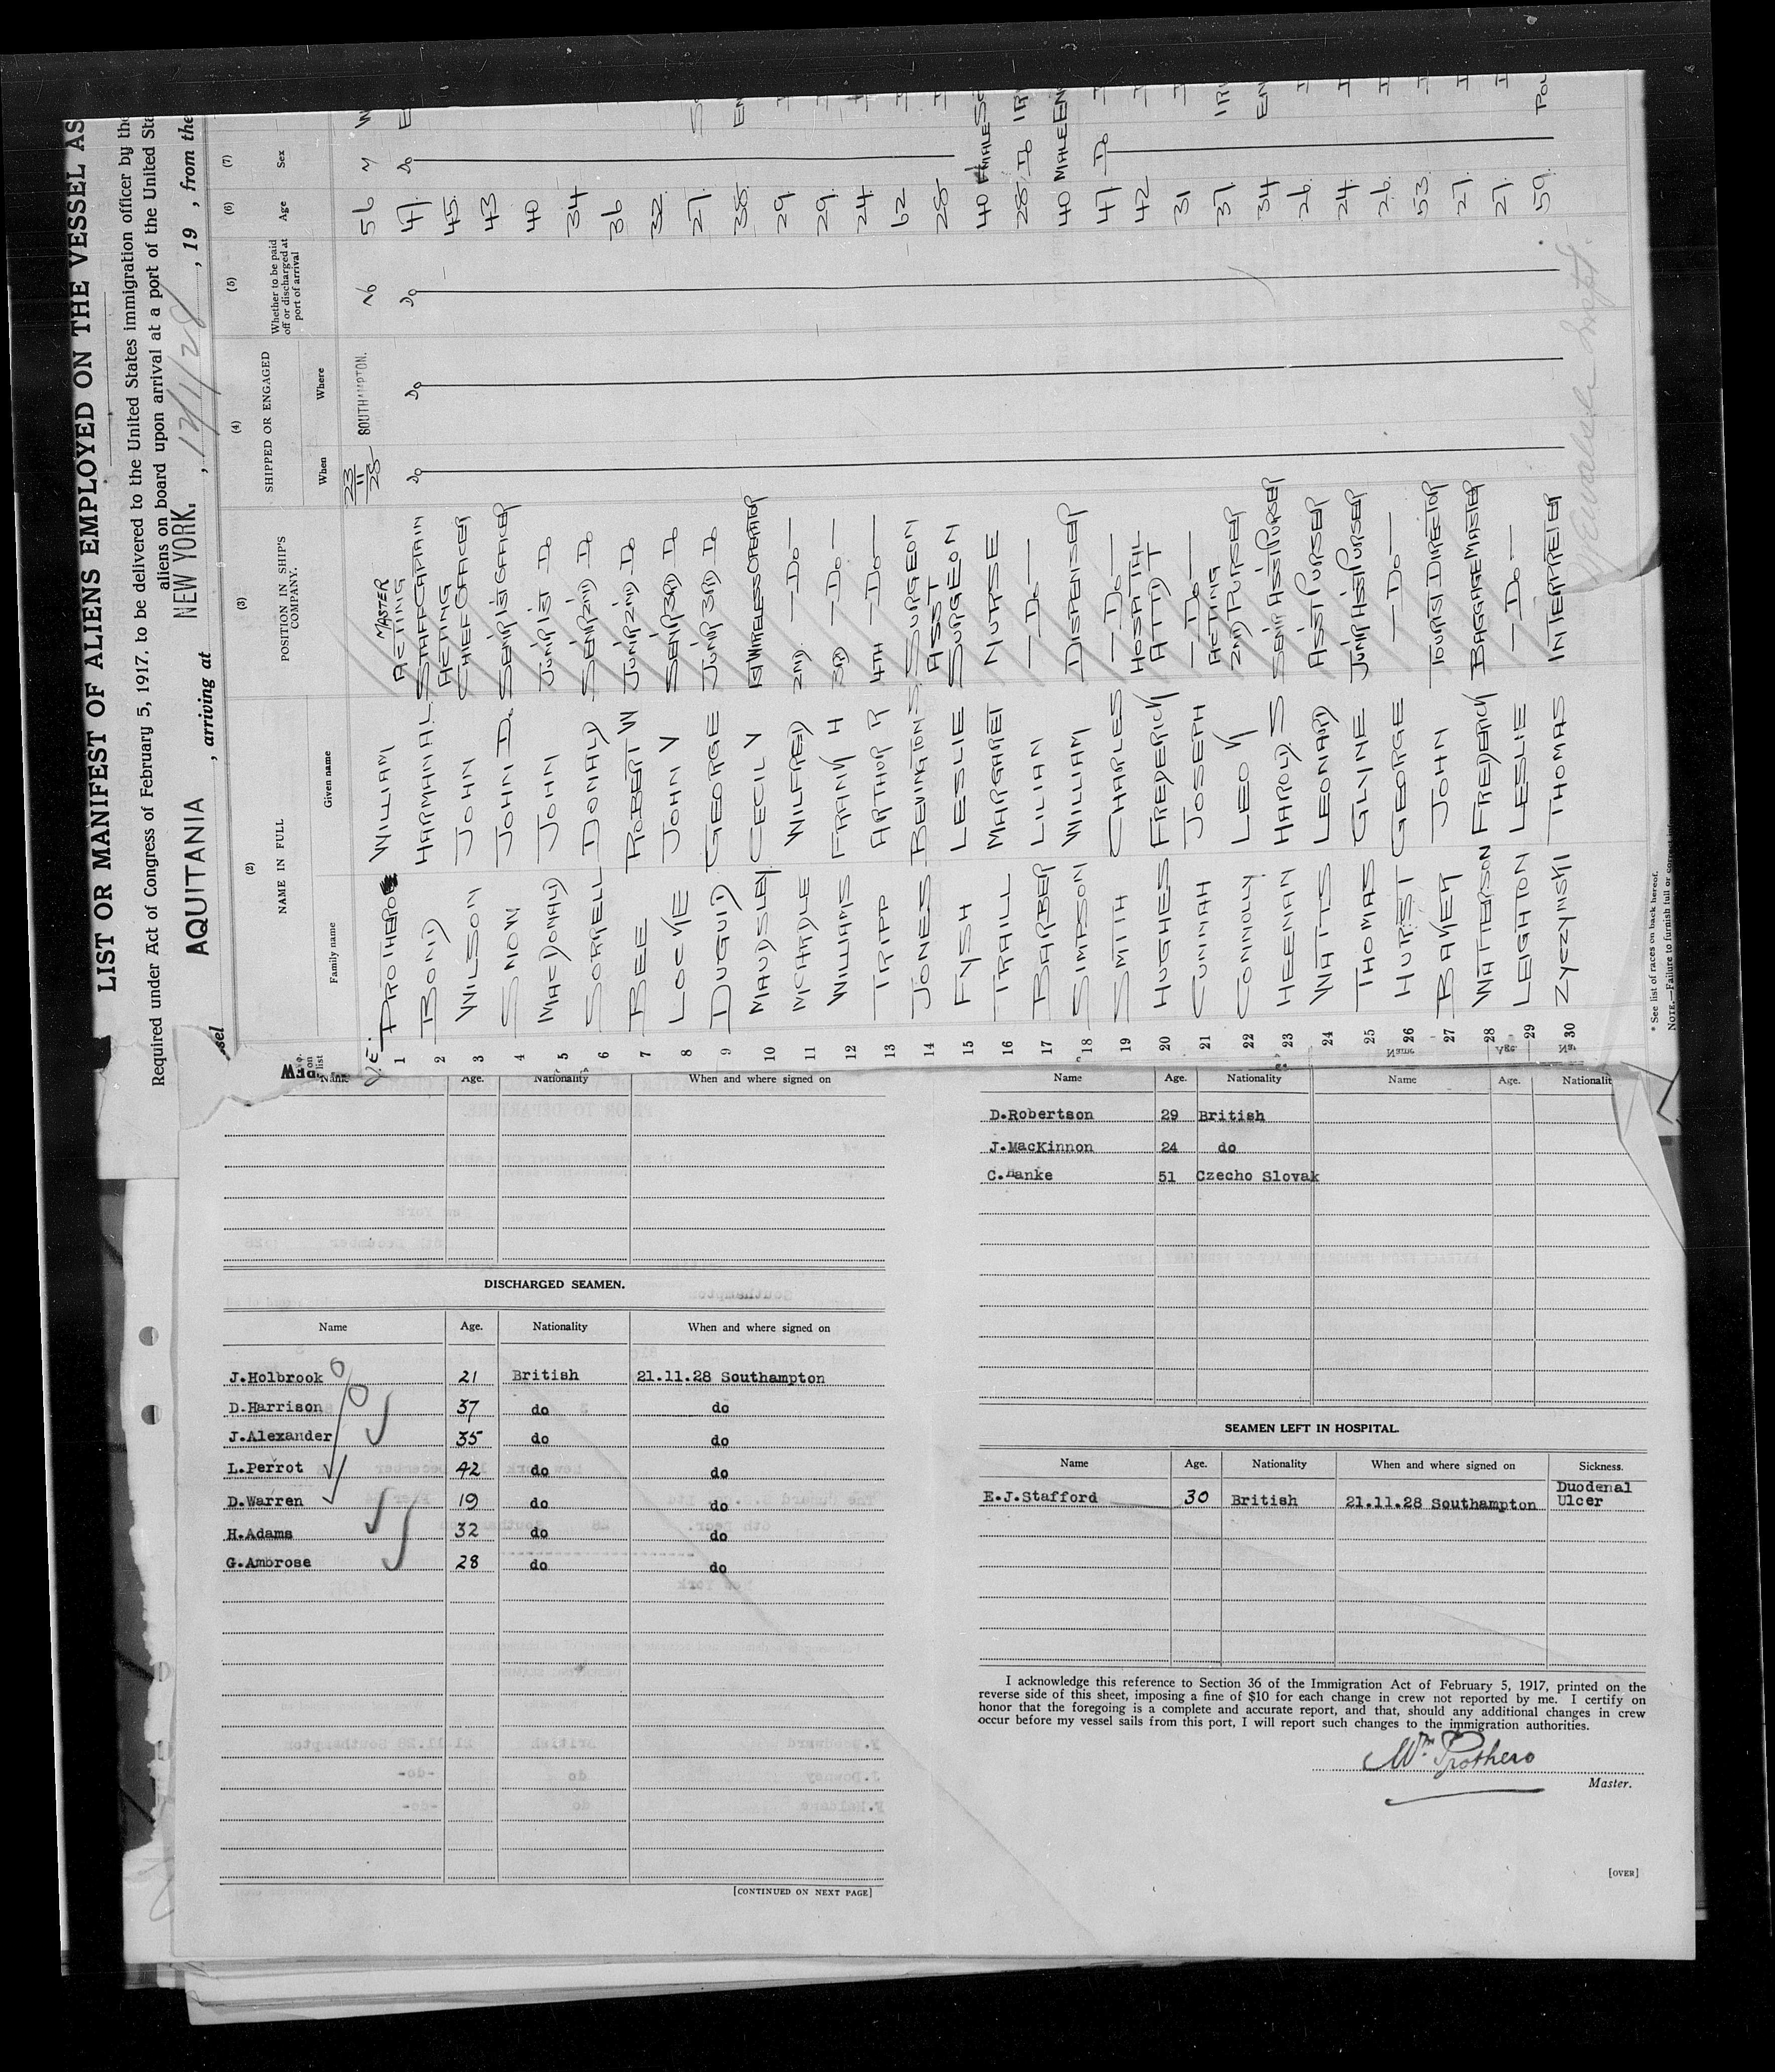 LIST OR MANIFEST OF ALIENS EMPLOYED ON THE VESSEL AS
Required under Act of Congress of February 5, 1917, to be delivered to the United States immigration officer by the
aliens on board upon arrival at a port of the United Sta
AQUITANIA , arriving at NEW YORK. , 12/1/28 , 19 , from the
(2) (3) (4) (5) (6) (7)
NAME IN FULL POSITION IN SHIP'S COMPANY. SHIPPED OR ENGAGED Whether to be paid off or discharged at port of arrival Age Sex
Family name Given name When Where
1 PROTHERO WILLIAM MASTER 23/11/28 SOUTHAMPTON. No 56 M
2 BOND HARMAN A L ACTING STAFF CAPTAIN Do Do Do 47 Do
3 WILSON JOHN ACTING CHIEF OFFICER 45
4 SNOW JOHN D. SENR 1ST OFFICER 43
5 MACDONALD JOHN JUNR 1ST DO 40
6 SORRELL DONALD SENR 2ND DO 34
7 BEE ROBERT W JUNR 2ND DO 36
8 LOCKE JOHN V SENR 3RD DO 32
9 DUGUID GEORGE JUNR 3RD DO 27
10 MAUDSLEY CECIL V 1ST WIRELESS OPERATOR 38
11 MCARDLE WILFRED 2ND —DO— 29
12 WILLIAMS FRANK H 3RD —DO— 29
13 TRIPP ARTHUR R 4TH —DO— 24
14 JONES BEVINGTON S. SURGEON 62
15 FYSH LESLIE ASST SURGEON 28
16 TRAILL MARGARET NURSE 40 FEMALE
17 BARBER LILIAN —DO— 28 DO
18 SIMPSON WILLIAM DISPENSER 40 MALE
19 SMITH CHARLES —DO— 47 DO
20 HUGHES FREDERICK HOSPITAL ATTDT 42
21 CUNNAH JOSEPH —DO— 31
22 CONNOLLY LEO K ACTING 2ND PURSER 37
23 HEENAN HAROLD S SENR ASST PURSER 34
24 WATTS LEONARD ASST PURSER 26
25 THOMAS GLYNE JUNR ASST PURSER 24
26 HURST GEORGE —DO— 26
27 BAKER JOHN TOURIST DIRECTOR 53
28 WATTERSON FREDERICK BAGGAGE MASTER 27
29 LEIGHTON LESLIE —DO— 27
30 ZYCZYNSKI THOMAS INTERPRETER 59
* See list of races on back hereof.
NOTE.—Failure to furnish full or correct inf
Name Age. Nationality When and where signed on
DISCHARGED SEAMEN.
Name Age. Nationality When and where signed on
J.Holbrook 21 British 21.11.28 Southampton
D.Harrison 37 do do
J.Alexander 35 do do
L.Perrot 42 do do
D.Warren 19 do do
H.Adams 32 do do
G.Ambrose 28 do do
[CONTINUED ON NEXT PAGE]
Name Age. Nationality Name Age. Nationalit
D.Robertson 29 British
J.MacKinnon 24 do
C.Hanke 51 Czecho Slovak
SEAMEN LEFT IN HOSPITAL.
Name Age. Nationality When and where signed on Sickness.
E.J.Stafford 30 British 21.11.28 Southampton Duodenal Ulcer
I acknowledge this reference to Section 36 of the Immigration Act of February 5, 1917, printed on the
reverse side of this sheet, imposing a fine of $10 for each change in crew not reported by me. I certify on
honor that the foregoing is a complete and accurate report, and that, should any additional changes in crew
occur before my vessel sails from this port, I will report such changes to the immigration authorities.
Wm. Prothero
Master.
[OVER]